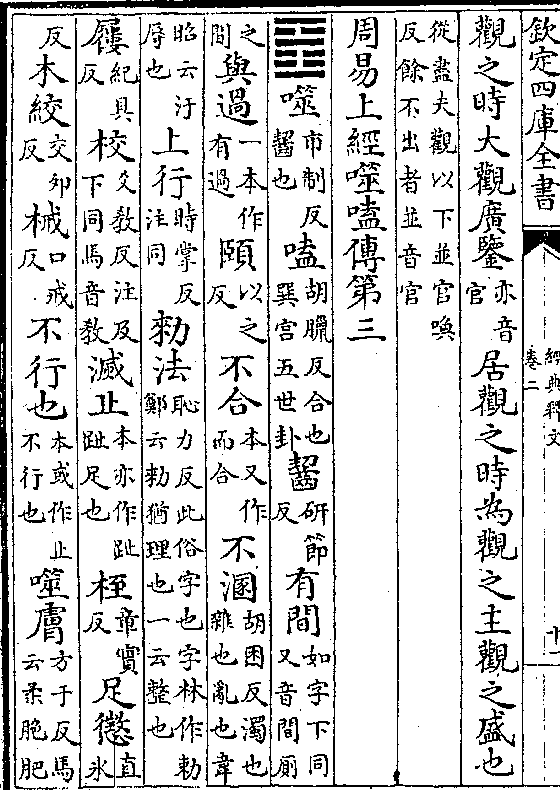 欽定四庫全書
經典釋文
卷二
十一
觀之時大觀廣鑒亦音官居觀之時為觀之主觀之盛也
從盡夫觀以下並官喚反餘不出者並音官
周易上經噬嗑傳第三
䷔噬市制反齧也嗑胡臘反合也巽宫五世卦齧研節反有間如字下同又音間厠
之間與過一本作有過頤以之反不合本又作而合不溷胡困反濁也雜也亂也韋
昭云汙辱也上行時掌反注同勑法恥力反此俗字也字林作勅鄭云勑猶理也一云整也
屨紀具反校爻教反注及下同馬音教滅止本亦作趾趾足也桎章實反足懲直氷
反木絞交卯反械口戒反不行也本或作止不行也噬膚方于反馬云柔脆肥